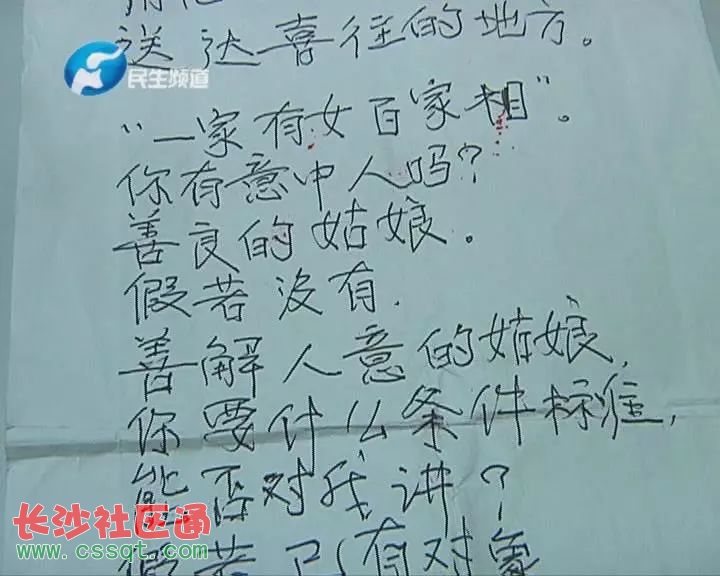 送达喜往的地方。
民生频道
"一家有女百家相"。
你有意中人吗?
善良的姑娘。
假若没有.
善解人意的姑娘,
你要什么条件标准,
能否对我讲?
假若已有对象
长沙社区通
www.cssqt.com